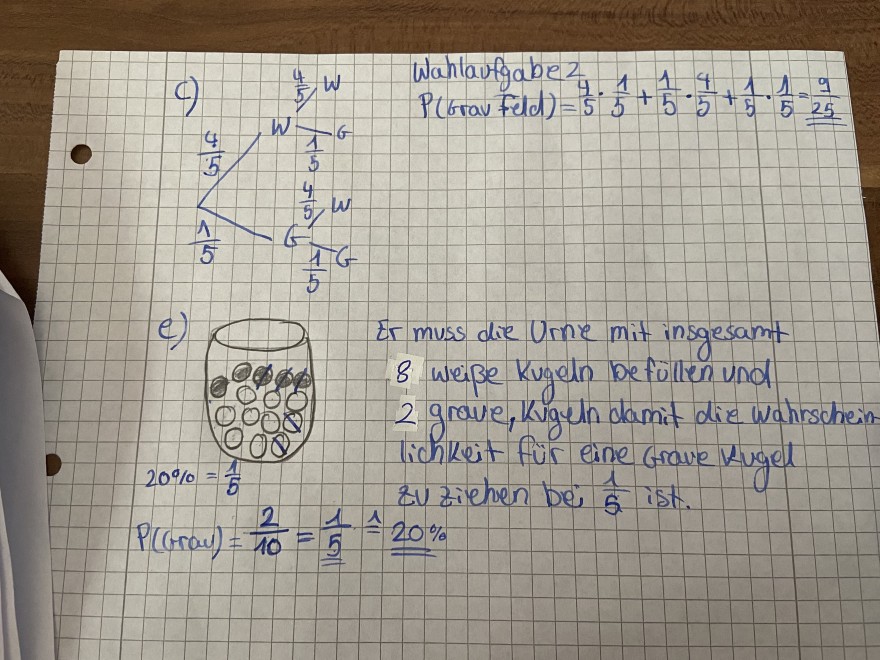 Wahlaufgabe 2
c)
P(Grau Feld) = 4/5 · 1/5 + 1/5 · 4/5 + 1/5 · 1/5 = 9/25
4/5 W
4/5 W G
1/5
4/5 W
1/5 G G
1/5
e)
Er muss die Urne mit insgesamt
8 weiße Kugeln befüllen und
2 graue, Kugeln damit die wahrschein
lichkeit für eine Graue Kugel
zu ziehen bei 1/5 ist.
20% = 1/5
P(Grau) = 2/10 = 1/5 ≙ 20%